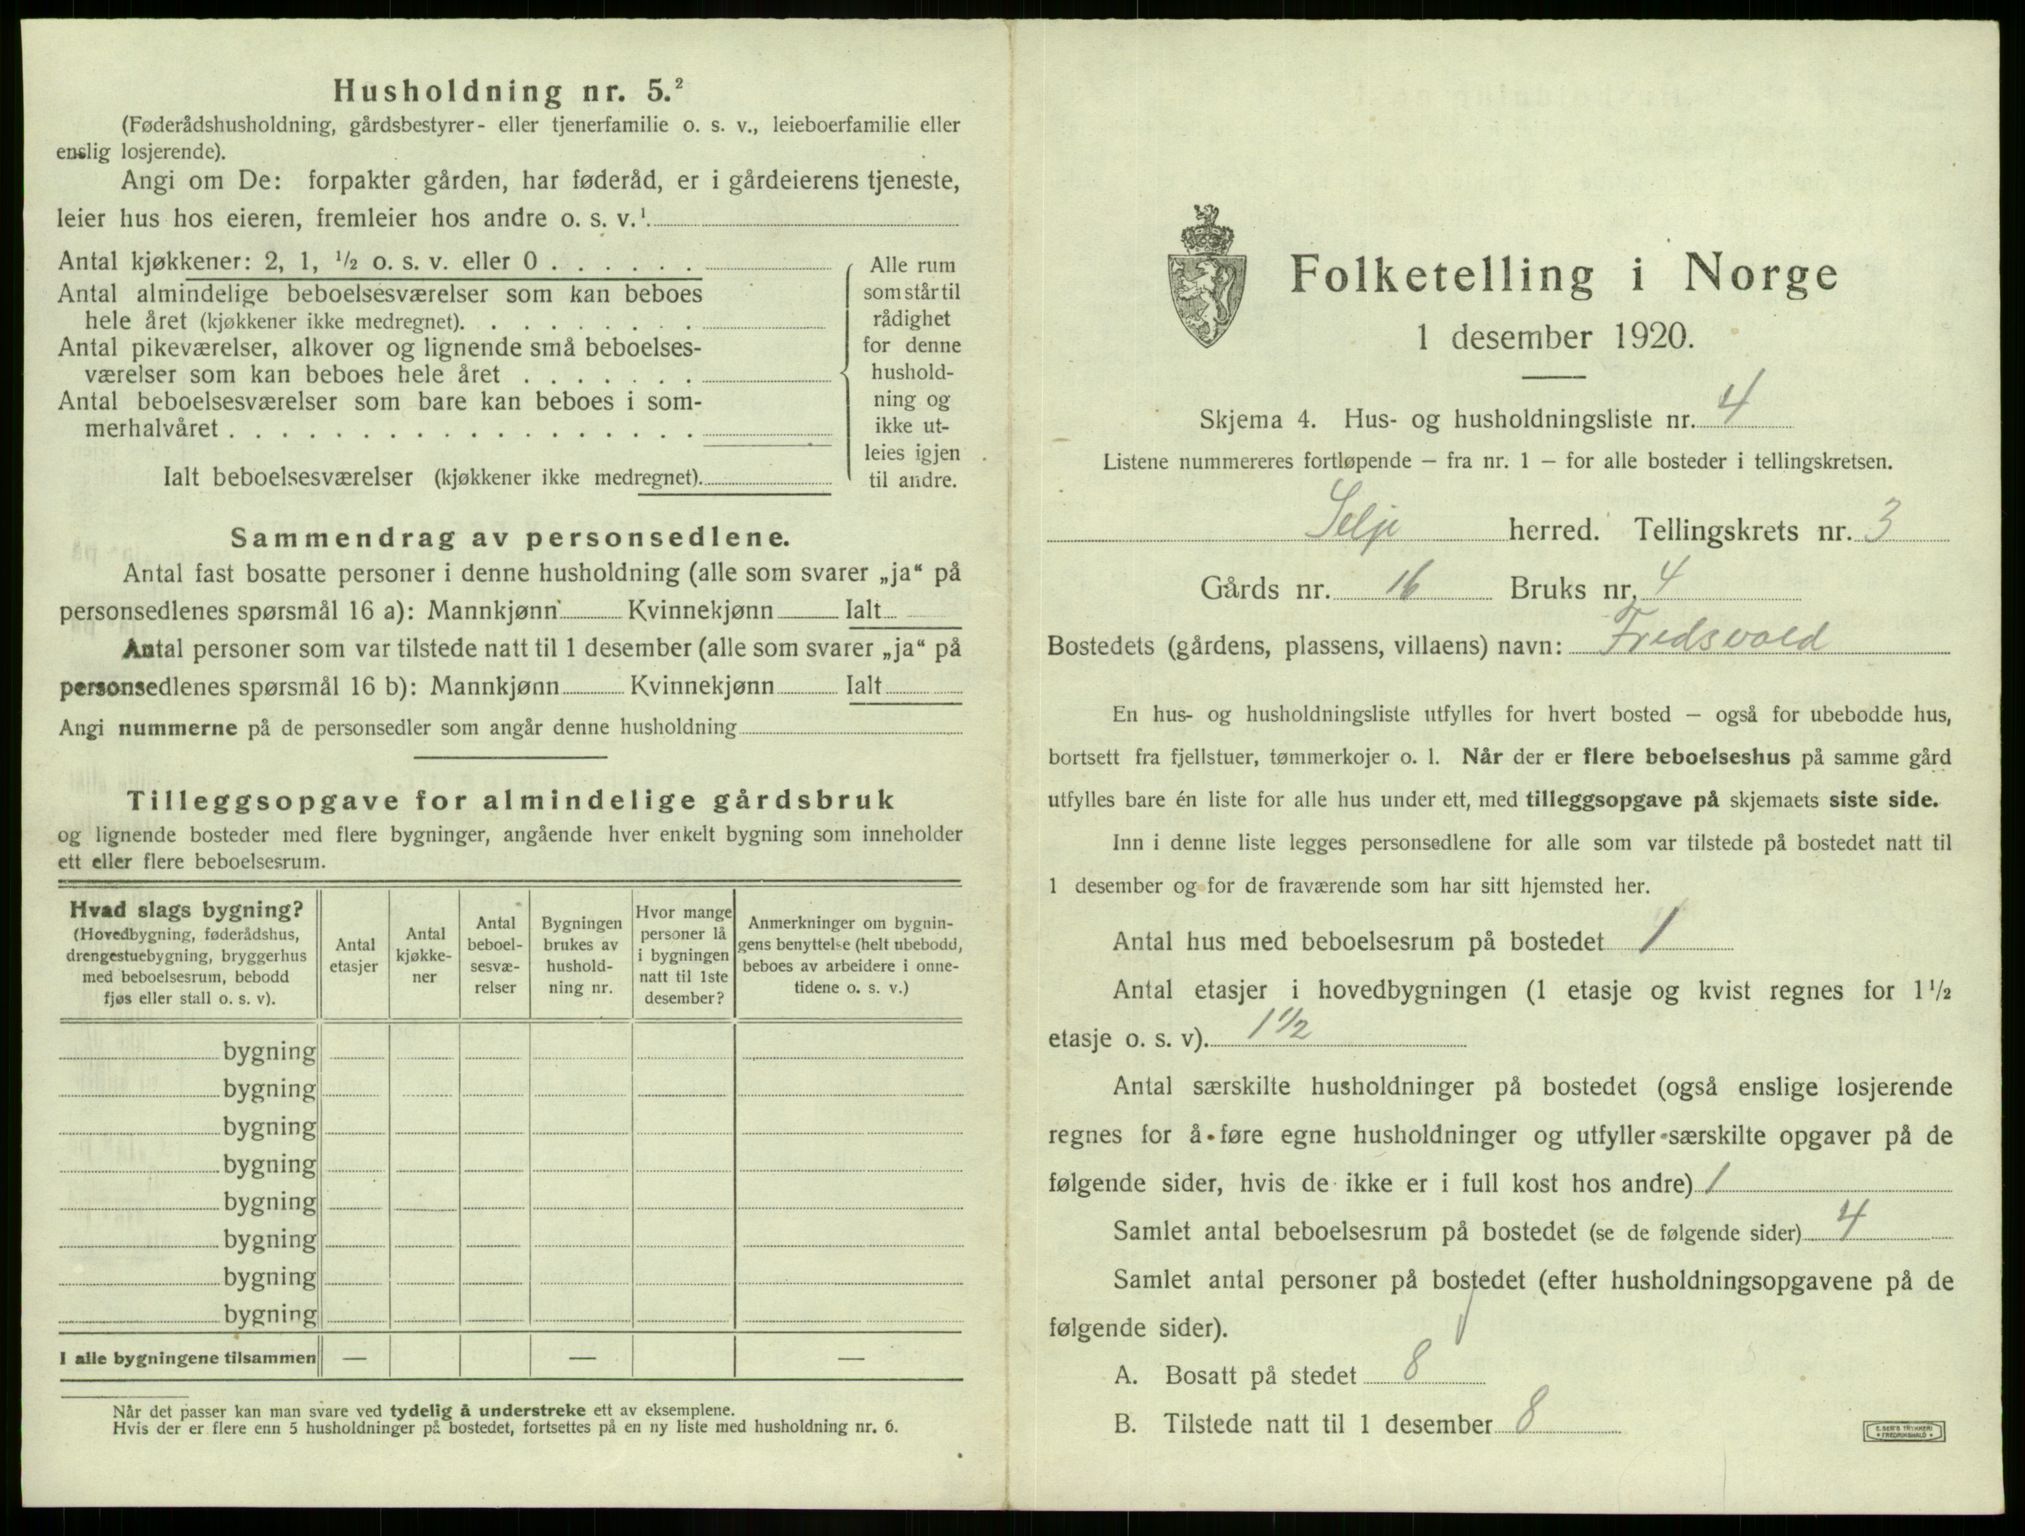 Husholdning nr. 5.²
(Føderådshusholdning, gårdsbestyrer- eller tjenerfamilie o. s. v., leieboerfamilie eller
enslig losjerende).
Angi om De: forpakter gården, har føderåd, er i gårdeierens tjeneste,
leier hus hos eieren, fremleier hos andre o. s. v.¹
Antal kjøkkener: 2, 1, ½ o. s. v. eller 0 . . . . . .
Antal almindelige beboelsesværelser som kan beboes
hele året (kjøkkener ikke medregnet). . . . . . . . .
Antal pikeværelser, alkover og lignende små beboelses-
værelser som kan beboes hele året . . . . . . .
Antal beboelsesværelser som bare kan beboes i som-
merhalvåret . . . . . . . . . . . . . . . . . .
Ialt beboelsesværelser (kjøkkener ikke medregnet).
Alle rum
som står til
rådighet
for denne
hushold-
ning og
ikke ut-
leies igjen
til andre.
Sammendrag av personsedlene.
Antal fast bosatte personer i denne husholdning (alle som svarer „ja“ på
personsedlenes spørsmål 16 a): Mannkjønn Kvinnekjønn Ialt
Antal personer som var tilstede natt til 1 desember (alle som svarer „ja“ på
personsedlenes spørsmål 16 b): Mannkjønn Kvinnekjønn Ialt
Angi nummerne på de personsedler som angår denne husholdning
Tilleggsopgave for almindelige gårdsbruk
og lignende bosteder med flere bygninger, angående hver enkelt bygning som inneholder
ett eller flere beboelsesrum.
Hvad slags bygning?
(Hovedbygning, føderådshus,
drengestuebygning, bryggerhus
med beboelsesrum, bebodd
fjøs eller stall o. s. v).
Antal
etasjer
Antal
kjøkke-
ner
Antal
beboel-
sesvæ-
relser
Bygningen
brukes av
hushold-
ning nr.
Hvor mange
personer lå
i bygningen
natt til 1ste
desember?
Anmerkninger om bygnin-
gens benyttelse (helt ubebodd,
beboes av arbeidere i onne-
tidene o. s. v.)
bygning
bygning
bygning
bygning
bygning
bygning
bygning
bygning
I alle bygningene tilsammen — — —
Når det passer kan man svare ved tydelig å understreke ett av eksemplene.
Hvis der er flere enn 5 husholdninger på bostedet, fortsettes på en ny liste med husholdning nr. 6.
Folketelling i Norge
1 desember 1920.
Skjema 4. Hus- og husholdningsliste nr. 4
Listene nummereres fortløpende – fra nr. 1 – for alle bosteder i tellingskretsen.
Selje herred. Tellingskrets nr. 3
Gårds nr. 16 Bruks nr. 4
Bostedets (gårdens, plassens, villaens) navn: Fredsvold
En hus- og husholdningsliste utfylles for hvert bosted – også for ubebodde hus,
bortsett fra fjellstuer, tømmerkojer o. l. Når der er flere beboelseshus på samme gård
utfylles bare én liste for alle hus under ett, med tilleggsopgave på skjemaets siste side.
Inn i denne liste legges personsedlene for alle som var tilstede på bostedet natt til
1 desember og for de fraværende som har sitt hjemsted her.
Antal hus med beboelsesrum på bostedet 1
Antal etasjer i hovedbygningen (1 etasje og kvist regnes for 1½
etasje o. s. v). 1½
Antal særskilte husholdninger på bostedet (også enslige losjerende
regnes for å føre egne husholdninger og utfyller særskilte opgaver på de
følgende sider, hvis de ikke er i full kost hos andre) 1
Samlet antal beboelsesrum på bostedet (se de følgende sider) 4
Samlet antal personer på bostedet (efter husholdningsopgavene på de
følgende sider).
A. Bosatt på stedet 8
B. Tilstede natt til 1 desember 8
E. SEM'S TRYKKERI
FREDRIKSHALD